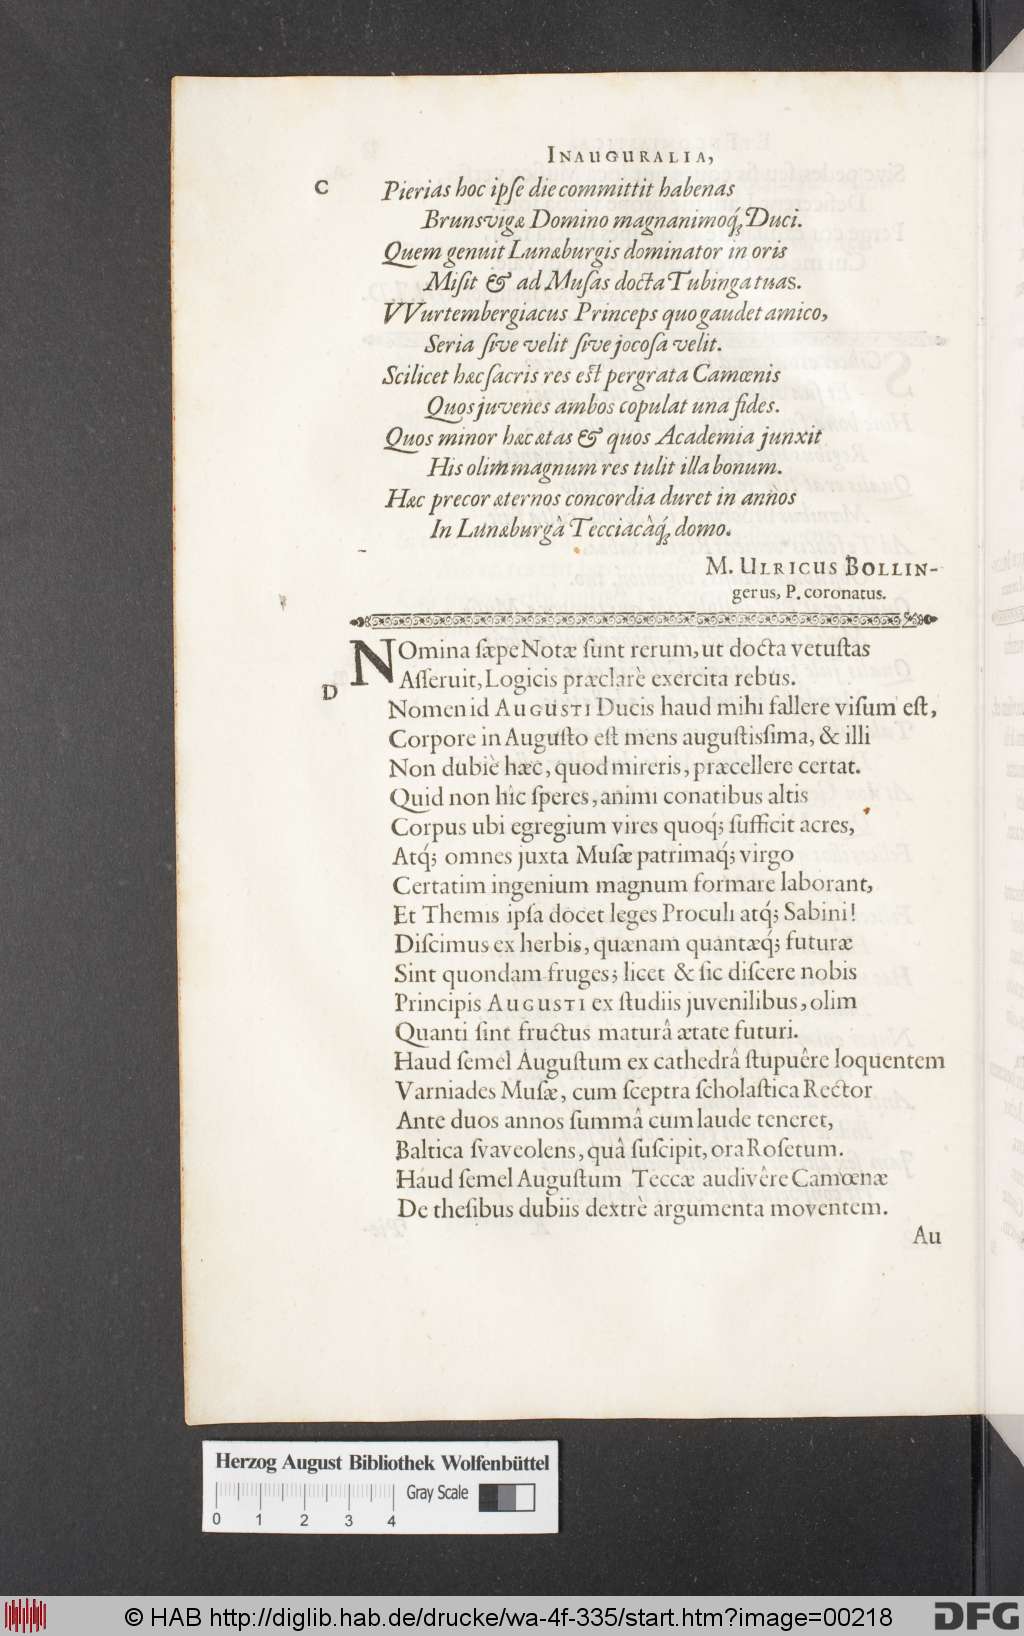 INAUGURALIA,
C
Pierias hoc ipſe die committit habenas
Brunsvigæ Domino magnanimoq́; Duci.
Quem genuit Lunæburgis dominator in oris
Miſit & ad Muſas docta Tubinga tuas.
VVurtembergiacus Princeps quo gaudet amico,
Seria ſive velit ſive jocoſa velit.
Scilicet hæc ſacris res eſt pergrata Camœnis
Quos juvenes ambos copulat una fides.
Quos minor hæc ætas & quos Academia junxit
His olim magnum res tulit illa bonum.
Hæc precor æternos concordia duret in annos
In Lunæburgâ Tecciacâq́; domo.
M. ULRICUS BOLLIN-
gerus, P. coronatus.
NOmina ſæpe Notæ ſunt rerum, ut docta vetuſtas
D
Aſſeruit, Logicis præclarè exercita rebus.
Nomen id AUGUSTI Ducis haud mihi fallere viſum eſt,
Corpore in Auguſto eſt mens auguſtiſsima, & illi
Non dubiè hæc, quod mireris, præcellere certat.
Quid non hîc ſperes, animi conatibus altis
Corpus ubi egregium vires quoq́; ſufficit acres,
Atq́; omnes juxta Muſæ patrimaq́; virgo
Certatim ingenium magnum formare laborant,
Et Themis ipſa docet leges Proculi atq́; Sabini!
Diſcimus ex herbis, quænam quantæq́; futuræ
Sint quondam fruges; licet & ſic diſcere nobis
Principis AUGUSTI ex ſtudiis juvenilibus, olim
Quanti ſint fructus maturâ ætate futuri.
Haud ſemel Auguſtum ex cathedrâ ſtupuêre loquentem
Varniades Muſæ, cum ſceptra ſcholaſtica Rector
Ante duos annos ſummâ cum laude teneret,
Baltica ſvaveolens, quâ ſuſcipit, ora Roſetum.
Haud ſemel Auguſtum Teccæ audivêre Camœnæ
De theſibus dubiis dextrè argumenta moventem.
Au
Herzog August Bibliothek Wolfenbüttel
Gray Scale
0 1 2 3 4
© HAB http://diglib.hab.de/drucke/wa-4f-335/start.htm?image=00218
DFG